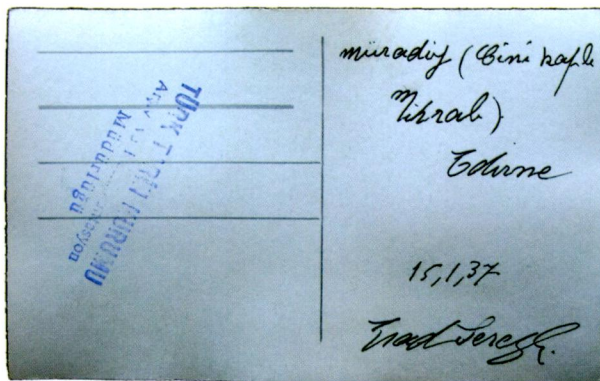 TÜRK TARİH KURUMU
Arşiv ve
Müdürlüğü
müradiy (Çini kaplı
Mihrabı)
Edirne
15,1,37